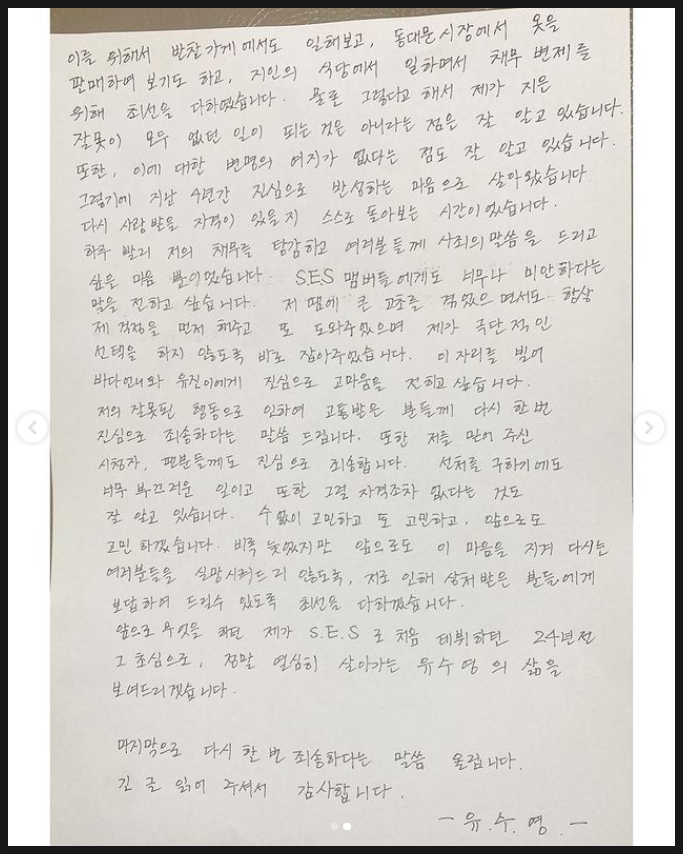 이를 위해서 반찬가게에서도 일해보고, 동대문시장에서 옷을
판매하여 보기도 하고, 지인의 식당에서 일하면서 채무 변제를
위해 최선을 다하였습니다. 물론 그렇다고 해서 제가 지은
잘못이 모두 없던 일이 되는 것은 아니라는 점은 잘 알고 있습니다.
또한, 이에 대한 변명의 여지가 없다는 점도 잘 알고 있습니다.
그렇기에 지난 4년간 진심으로 반성하는 마음으로 살아왔습니다
다시 사랑받을 자격이 있을지 스스로 돌아보는 시간이었습니다.
하루 빨리 저의 채무를 탕감하고 여러분들께 사죄의 말씀을 드리고
싶은 마음 뿐이었습니다. S.E.S 맴버들에게도 너무나 미안하다는
말을 전하고 싶습니다. 저 땜에 큰 고초를 겪었으면서도 항상
제 걱정을 먼저 해주고 또 도와주었으며 제가 극단적인
선택을 하지 않도록 바로 잡아주었습니다. 이 자리를 빌어
바다언니와 유진이에게 진심으로 고마움을 전하고 싶습니다.
저의 잘못된 행동으로 인하여 고통받은 분들께 다시 한번
진심으로 죄송하다는 말씀 드립니다. 또한 저를 믿어 주신
시청자, 팬분들께도 진심으로 죄송합니다. 선처를 구하기에도
너무 부끄러운 일이고 또한 그럴 자격조차 없다는 것도
잘 알고 있습니다. 수없이 고민하고 또 고민하고, 앞으로도
고민 하겠습니다. 비록 늦었지만 앞으로도 이 마음을 지켜 다시는
여러분들을 실망시켜드리 않도록, 저로 인해 상처받은 분들에게
보답하여 드릴수 있도록 최선을 다하겠습니다.
앞으로 무엇을 하던 제가 S.E.S로 처음 데뷔하던 24년전
그 초심으로, 정말 열심히 살아가는 유수영의 삶을
보여드리겠습니다.
마지막으로 다시 한 번 죄송하다는 말씀 올립니다.
긴 글 읽어 주셔서 감사합니다.
- 유.수.영. -